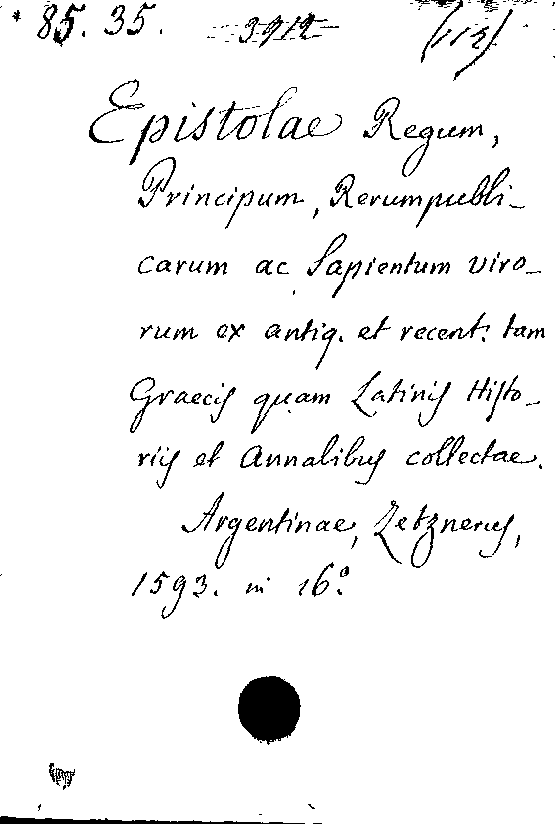 * 85. 35. 3912 (113)
Epistolae Regum,
Principum, Rerumpubli-
carum ac Sapientum viro-
rum ex antiq. et recent: tam
Graecis quam Latinis Histo-
riis et Annalibus collectae.
Argentinae, Zetznerus,
1593. in 16°.